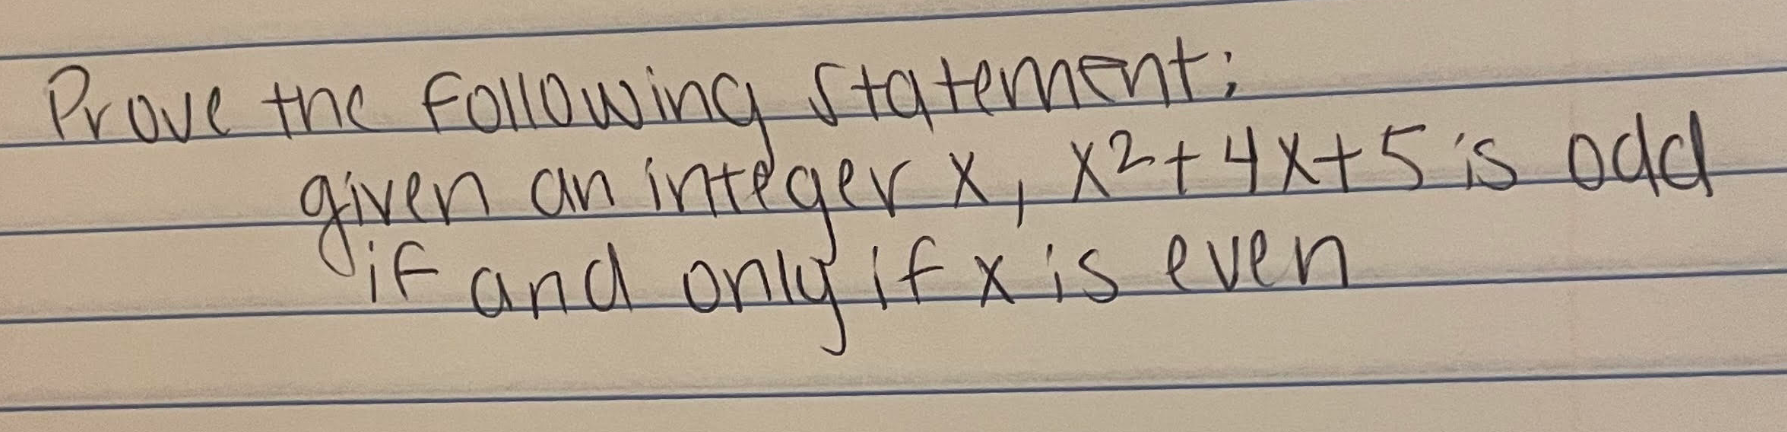 Prove the following statement:
given an integer x, x2+4x+5 is odd
if and only if x is even